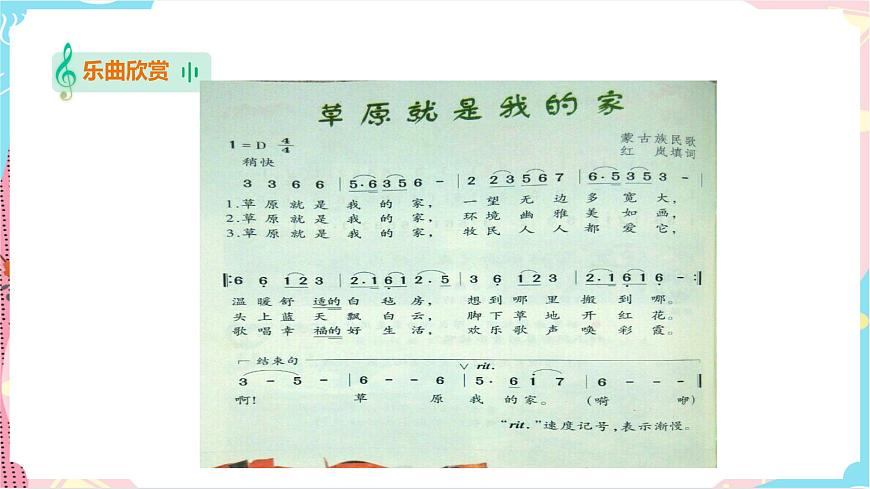 乐曲欣赏
草原就是我的家
1=D 4/4
蒙古族民歌
稍快
红岚填词
3 3 6 6 | 5·6 3 5 6 - | 2 2 2 3 5 6 7 | 6·5 3 5 3 - |
1.草原就是我的家, 一望无边多宽大,
2.草原就是我的家, 环境幽雅美如画,
3.草原就是我的家, 牧民人人都爱它,
‖:6 6 1 2 3 | 2·1 6 1 2·5 | 3 6 1 2 3 | 2·1 6 1 6 - :‖
温暖舒适的白毡房, 想到哪里搬到哪。
头上蓝天飘白云, 脚下草地开红花。
歌唱幸福的好生活, 欢乐歌声唤彩霞。
结束句
rit.
3 - 5 - | 6 - - 6 | 5· 6 i 7 | 6 - - ‖
啊! 草原我的家。(嗬咿)
“rit.”速度记号,表示渐慢。